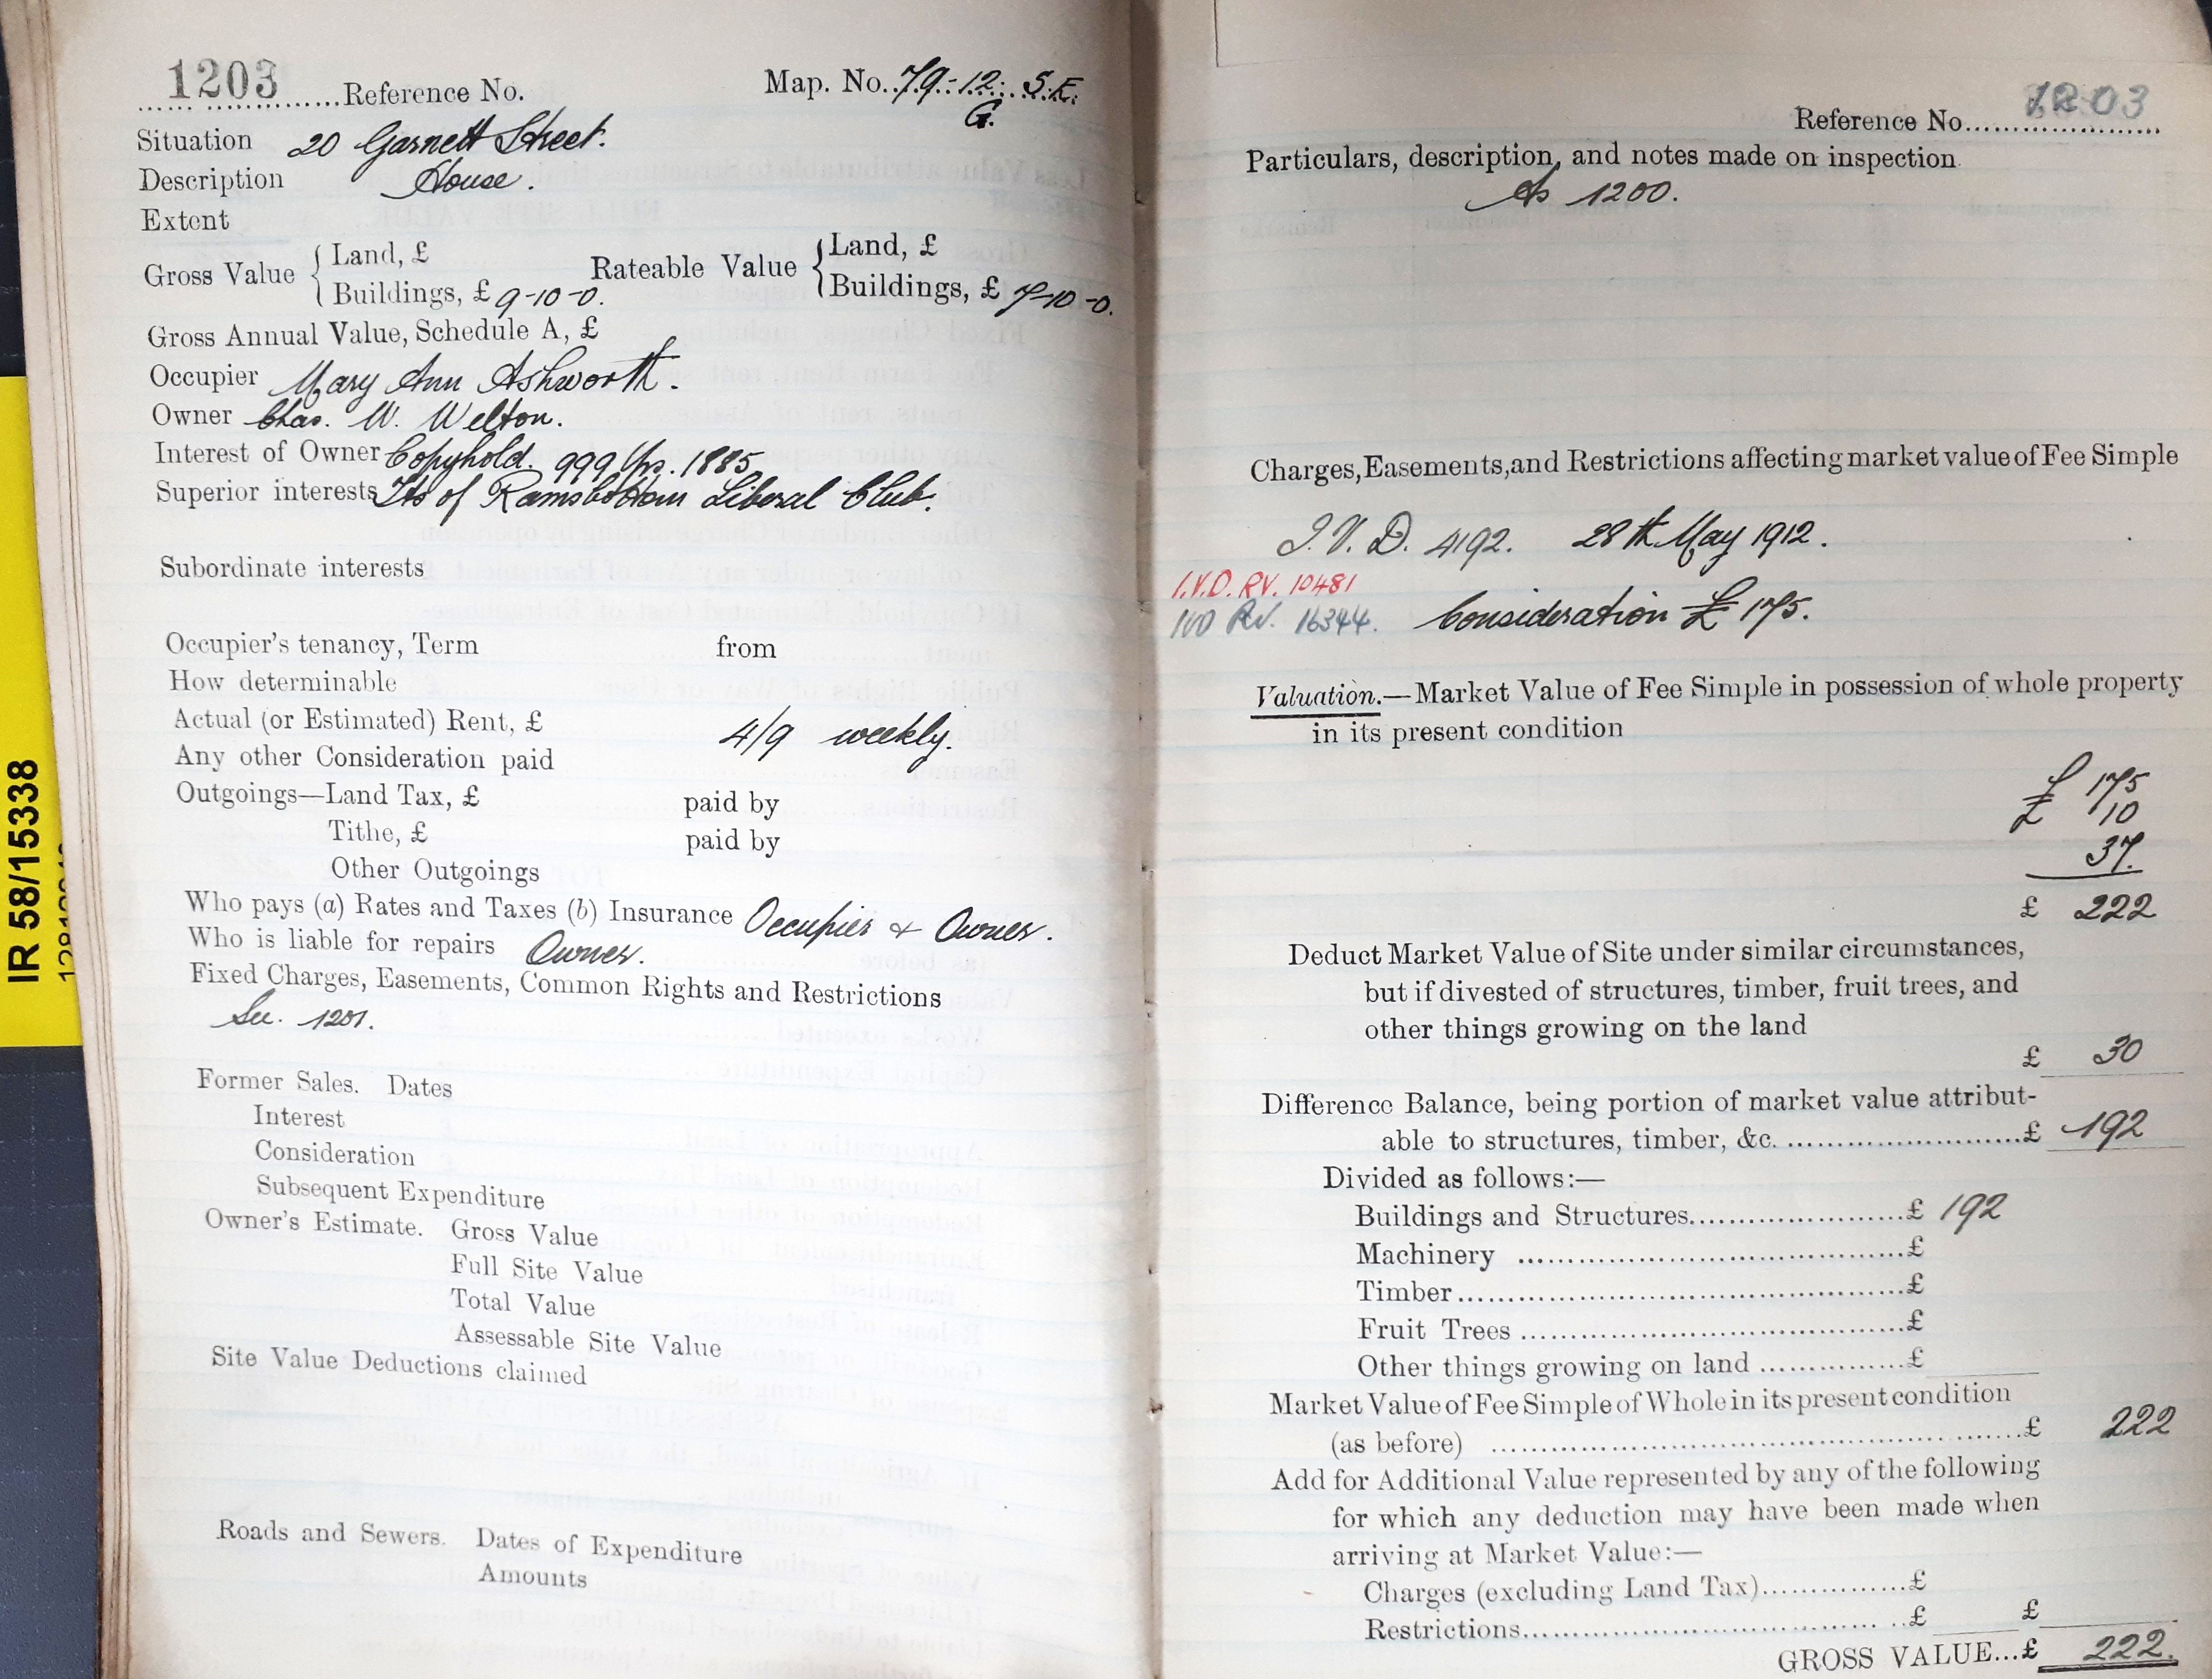 IR 58/15338
1203 Reference No.
Map. No. 79-12. S.E.
G.
Situation 20 Garnett Street.
Description House.
Extent
Gross Value { Land, £
Buildings, £ 9-10-0.
Rateable Value { Land, £
Buildings, £ 7-10-0.
Gross Annual Value, Schedule A, £
Occupier Mary Ann Ashworth.
Owner Chas. W. Welton.
Interest of Owner Copyhold. 999 Yrs. 1885
Superior interests Trs of Ramsbottom Liberal Club.
Subordinate interests
Occupier's tenancy, Term from
How determinable
Actual (or Estimated) Rent, £ 4/9 weekly.
Any other Consideration paid
Outgoings—Land Tax, £ paid by
Tithe, £ paid by
Other Outgoings
Who pays (a) Rates and Taxes (b) Insurance Occupier & Owner.
Who is liable for repairs Owner.
Fixed Charges, Easements, Common Rights and Restrictions
See. 1201.
Former Sales. Dates
Interest
Consideration
Subsequent Expenditure
Owner's Estimate. Gross Value
Full Site Value
Total Value
Assessable Site Value
Site Value Deductions claimed
Roads and Sewers. Dates of Expenditure
Amounts
Reference No. 1203
Particulars, description, and notes made on inspection
As 1200.
Charges, Easements, and Restrictions affecting market value of Fee Simple
I.V.D. 4192. 28th May 1912.
I.V.D. RV. 10481
RV. 16344. Consideration £ 175.
Valuation.—Market Value of Fee Simple in possession of whole property
in its present condition
£ 175
£ 10
37.
£ 222
Deduct Market Value of Site under similar circumstances,
but if divested of structures, timber, fruit trees, and
other things growing on the land
£ 30
Difference Balance, being portion of market value attribut-
able to structures, timber, &c. £ 192
Divided as follows:—
Buildings and Structures £ 192
Machinery £
Timber £
Fruit Trees £
Other things growing on land £
Market Value of Fee Simple of Whole in its present condition
(as before) £ 222
Add for Additional Value represented by any of the following
for which any deduction may have been made when
arriving at Market Value:—
Charges (excluding Land Tax) £
Restrictions £ £
GROSS VALUE...£ 222.